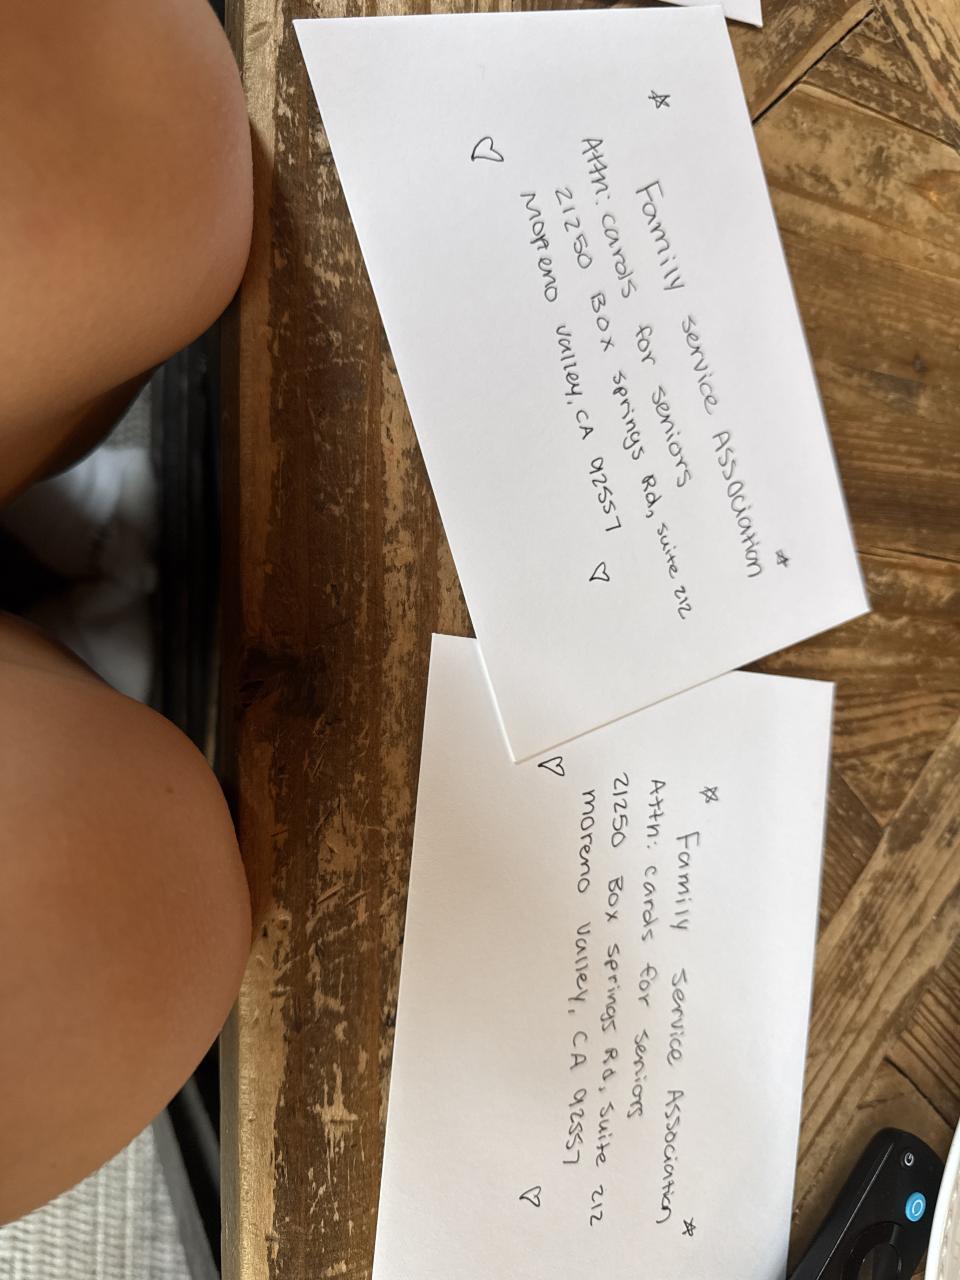 Family service Association
Attn: cards for seniors
21250 Box springs Rd, suite 212
Moreno valley, CA 92557
Family Service Association
Attn: cards for seniors
21250 Box springs Rd, suite 212
moreno valley, CA 92557